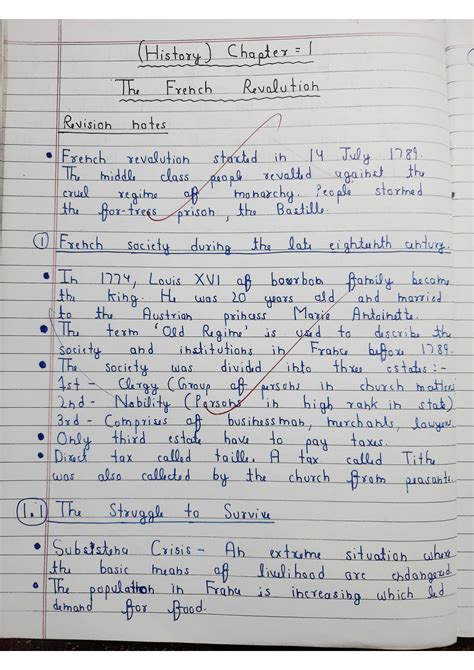 (History) Chapter = 1
The French Revalution
Revision notes
• French revalution started in 14 July 1789.
The middle class people revalted against the
cruel regime of monarchy. People stormed
the for-tress prison, the Bastille.
① French society during the late eighteenth century.
• In 1774, Louis XVI of bourbon family became
the King. He was 20 years old and married
to the Austrian princess Marie Antoinette.
• The term 'Old Regime' is used to describe the
society and institutions in France before 1789.
• The society was divided into three estates :-
1st - Clergy (Group of persons in church matters)
2nd - Nobility (Persons in high rank in state)
3rd - Comprises of businessman, merchants, lawyers
• Only third estate have to pay taxes.
• Direct tax called taille. A tax called Tithe
was also collected by the church from peasants.
1.1 The Struggle to Survive
• Subsistence Crisis - An extreme situation where
the basic means of livelihood are endangered
• The population in France is increasing which led
demand for food.